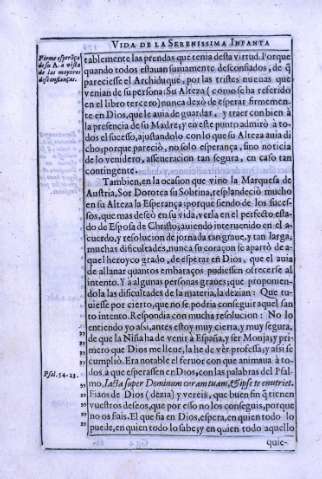 VIDA DE LA SERENISSIMA INFANTA
Firme esperãça
de su A. a vista
de las mayores
desconfianças.
tablemente las prendas que tenia desta virtud. Porque
quando todos estauan sumamente desconfiados, de q̃
pareciesse el Archiduque, por las tristes nueuas que
venian de su persona: Su Alteza (como se ha referido
en el libro tercero) nunca dexò de esperar firmemen-
te en Dios, que le auia de guardar, y traer con bien à
la presencia de su Madre; y en este punto admirò à to-
dos el sucesso, ajustandolo con lo que su Alteza auia di
cho; porque pareciò, no solo esperança, sino noticia
de lo venidero, asseueracion tan segura, en caso tan
contingente.
Tambien, en la ocasion que vino la Marquesa de
Austria, Sor Dorotea su Sobrina, resplandeciò mucho
en su Alteza la Esperança; porque siendo de los suces-
sos, que mas deseò en su vida, verla en el perfecto esta-
do de Esposa de Christo; auiendo interuenido en el a-
cuerdo, y resolucion de jornada tan graue, y tan larga,
muchas dificultades, nunca su coraçon se apartò de a-
quel heroyco grado, de esperar en Dios, que el auia
de allanar quantos embaraços pudiessen ofrecerse al
intento. Y à algunas personas graues; que proponien-
dola las dificultades de la materia, la dezian: Que tu-
uiesse por cierto, que no se podria conseguir aquel san
to intento. Respondia con mucha resolucion: No lo
entiendo yo assi, antes estoy muy cierta, y muy segura,
de que la Niña ha de venir à España, y ser Monja; y pri
mero que Dios me lleue, la he de ver professa; y assi se
cumpliò. Era notable el feruor con que animaua à to-
dos à que esperassen en Dios, con las palabras del Psal-
Psal. 54. 23.
mo, Iacta super Dominum curam tuam, & ipse te enutriet.
Fiaos de Dios (dezia) y vereis, que buen fin q̃ tienen
vuestros deseos, que por esso no los conseguis, porque
no os fiais. El que fia en Dios, espera, en quien todo lo
puede, en quien todo lo sabe; y en quien todo aquello
quie-